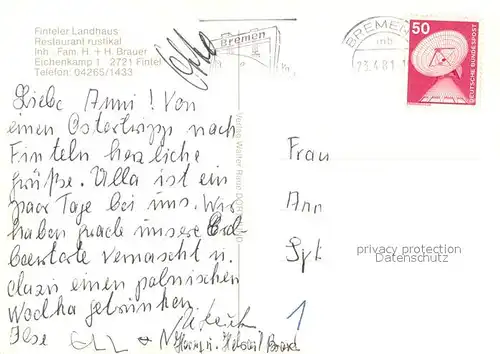 Finteler Landhaus
Restaurant rustikal
Inh. Fam. H. + H. Brauer
Eichenkamp 1 2721 Fintel
Telefon: 04265/1433
Bremen
BREMEN
mb
23.4.81
50
DEUTSCHE BUNDESPOST
Liebe Anni! Von
einen Ostertripp nach
Finteln herzliche
Grüße. Ulla ist ein
paar Tage bei uns. Wir
haben grade unsere Erd-
beertorte vernascht u.
dazu einen polnischen
Wodka getrunken.
Ilse
Verlag Walter Rose
Frau
Ann
privacy protection
Datenschutz
1